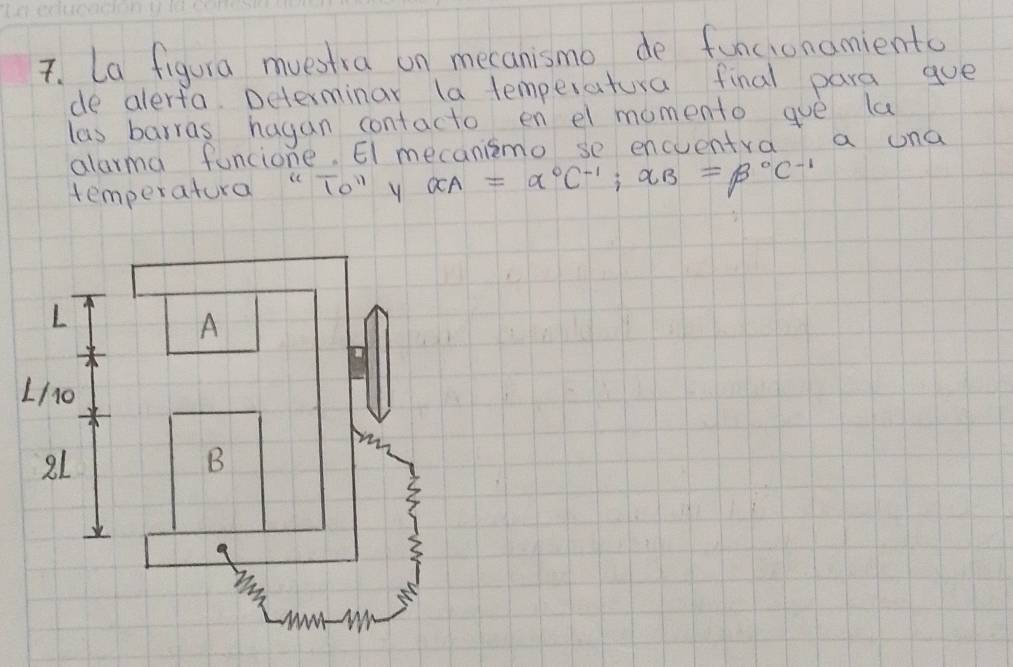 7. La figura muestra un mecanismo de funcionamiento
de alerta. Determinar la temperatura final para que
las barras hagan contacto en el momento que la
alarma funcione. El mecanismo se encuentra a una
temperatura "To" y αA = α°C⁻¹; αB = β°C⁻¹
L
A
L/10
2L
B